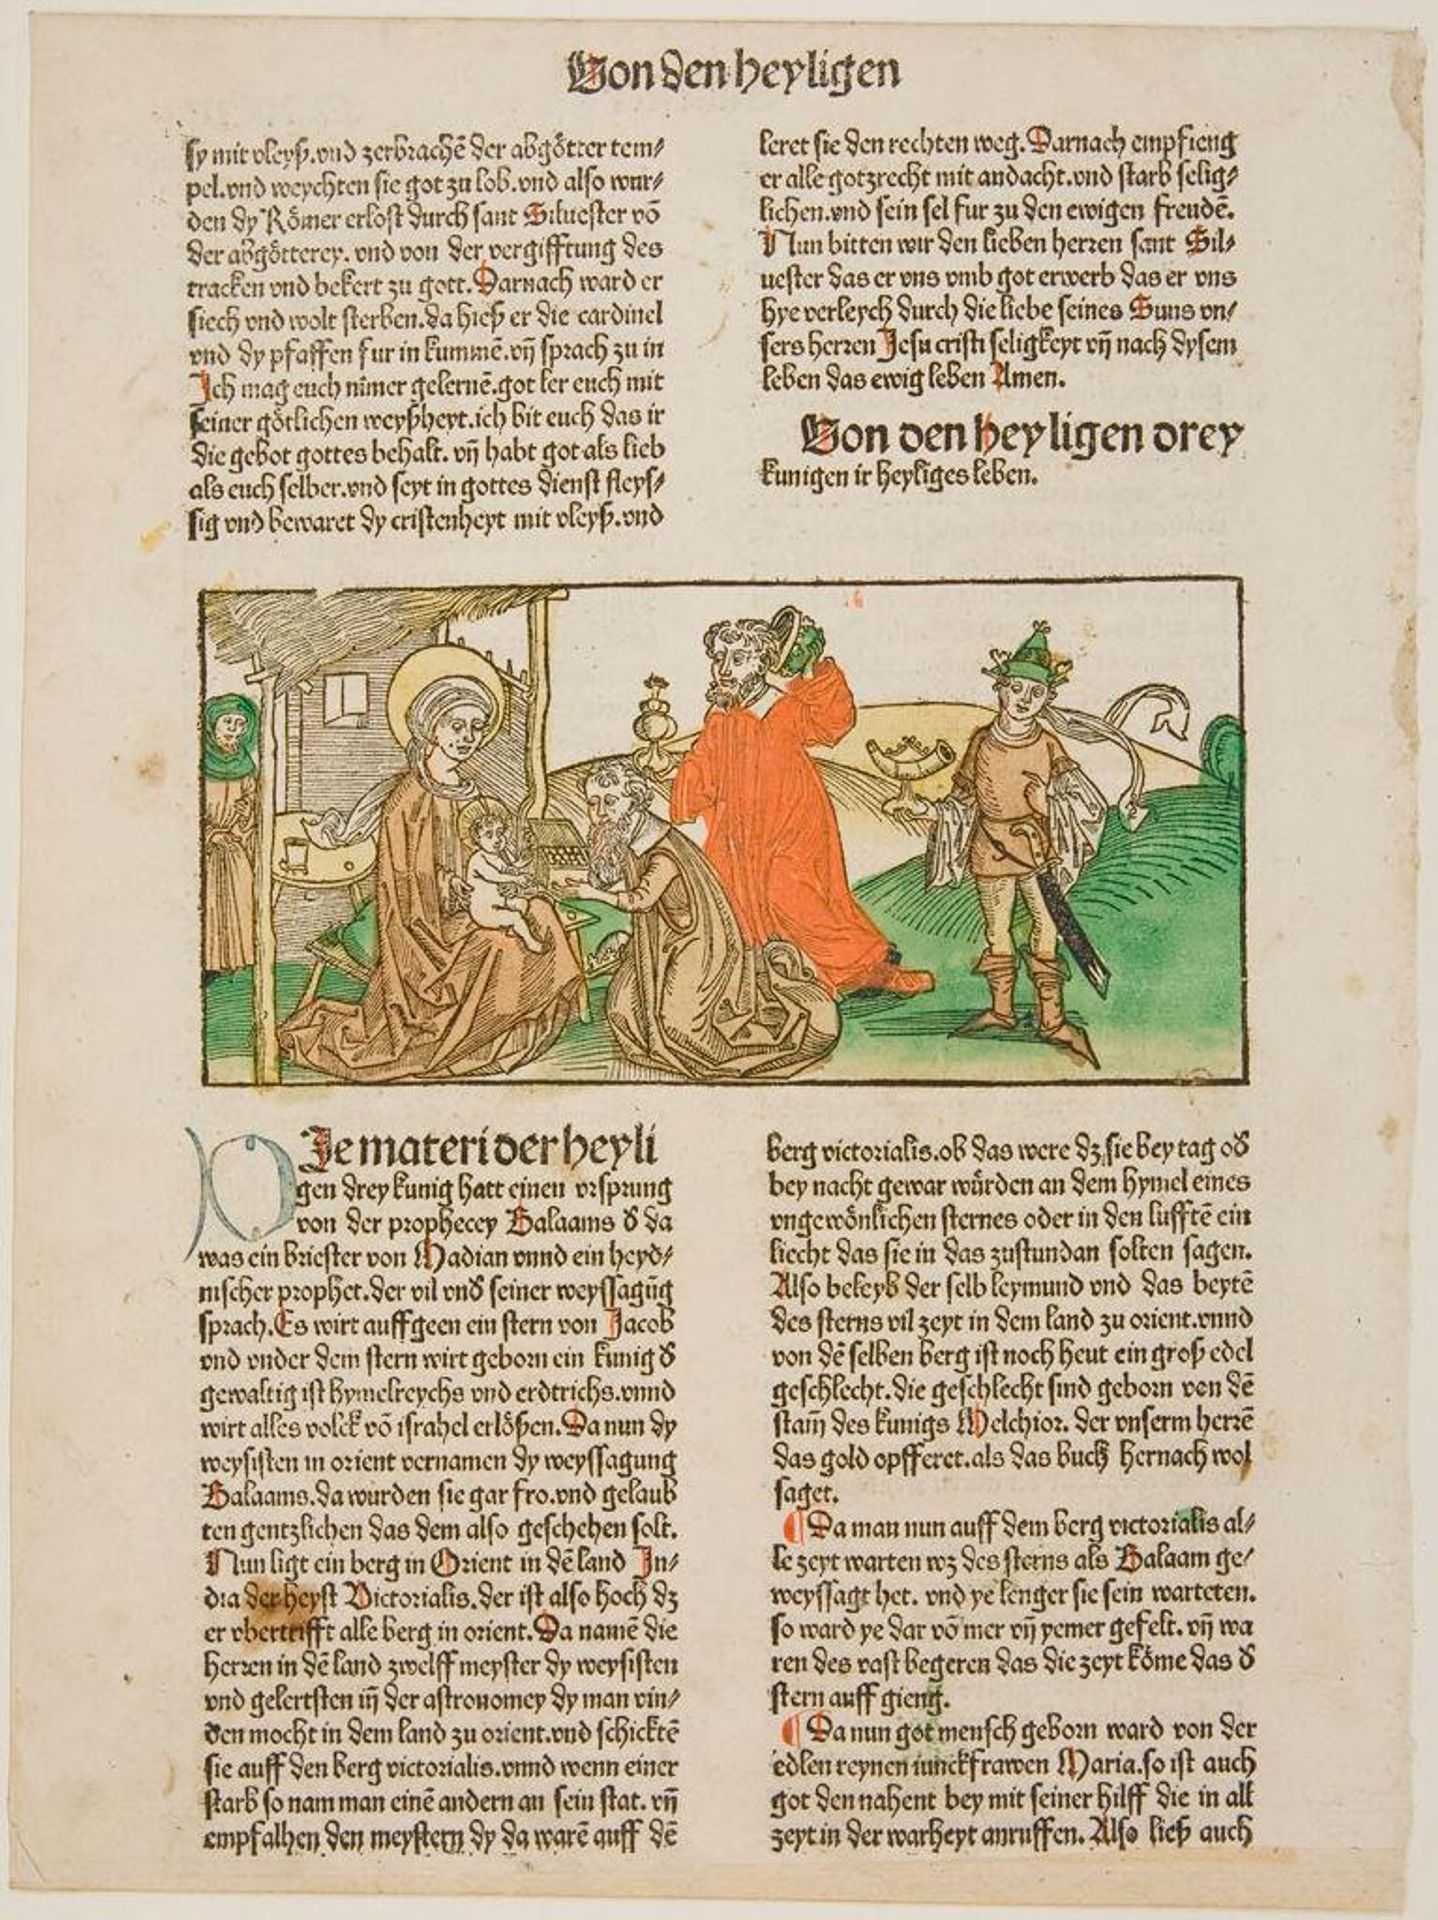 Von den heyligen
sy mit vleyß.vnd zerbrachē der abgötter tem/
pel.vnd weychten sie got zu lob.vnd also wur/
den dy Römer erlost durch sant Siluester vō
der abgötterey. vnd von der vergifftung des
tracken vnd bekert zu gott. Darnach ward er
siech vnd wolt sterben.da hieß er die cardinel
vnd dy pfaffen fur in kummē.vn̄ sprach zu in
Ich mag euch nimer gelernē.got ler euch mit
seiner götlichen weyßheyt.ich bit euch das ir
die gebot gottes behalt. vn̄ habt got als lieb
als euch selber.vnd seyt in gottes dienst fleys/
sig vnd bewaret dy cristenheyt mit vleyß.vnd
leret sie den rechten weg. Darnach empfieng
er alle gotzrecht mit andacht.vnd starb selig/
lichen.vnd sein sel fur zu den ewigen freudē.
Nun bitten wir den lieben herren sant Sil/
uester das er vns vmb got erwerb das er vns
hye verleych durch die liebe seines Suns vn/
sers herren Jesu cristi seligkeyt vn̄ nach dysem
leben das ewig leben Amen.
Von den heyligen drey
kunigen ir heyliges leben.
DIe materi der heyli
gen drey kunig hatt einen vrsprung
von der prophecey Balaams d̕ da
was ein briester von Madian vnnd ein heyd/
nischer prophet.der vil vnd̕ seiner weyssagūg
sprach.Es wirt auffgeen ein stern von Jacob
vnd vnder dem stern wirt geborn ein kunig d̕
gewaltig ist hymelreychs vnd erdtrichs.vnnd
wirt alles volck vō israhel erlößen. Da nun dy
weysisten in orient vernamen dy weyssagung
Balaams.da wurden sie gar fro.vnd gelaub
ten gentzlichen das dem also geschehen solt.
Nun ligt ein berg in Orient in dē land In/
dia der heyst Victorialis.der ist also hoch dz
er vbertrifft alle berg in orient. Da namē die
herren in dē land zwelff meyster dy weysisten
vnd gelertsten in̄ der astronomey dy man vin/
den mocht in dem land zu orient.vnd schicktē
sie auff den berg victorialis.vnnd wenn einer
starb so nam man einē andern an sein stat. vn̄
empfalhen den meystern dy da warē auff dē
berg victorialis.ob das were dz sie bey tag od̕
bey nacht gewar würden an dem hymel eines
vngewönlichen sternes oder in den lufftē ein
liecht das sie in das zustundan solten sagen.
Also beleyb der selb leymund vnd das beytē
des sterns vil zeyt in dem land zu orient.vnnd
von dē selben berg ist noch heut ein groß edel
geschlecht.die geschlecht sind geborn von dē
stam̄ des kunigs Melchior. der vnserm herrē
das gold opfferet.als das buch hernach wol
saget.
¶ Da man nun auff dem berg victorialis al/
le zeyt warten wz des sterns als Balaam ge/
weyssagt het. vnd ye lenger sie sein warteten.
so ward ye dar vō mer vn̄ yemer gefelt. vn̄ wa
ren des vast begeren das die zeyt kōme das d̕
stern auff gieng.
¶ Da nun got mensch geborn ward von der
edlen reynen iunckfrawen Maria.so ist auch
got den nahent bey mit seiner hilff die in all
zeyt in der warheyt anruffen. Also ließ auch